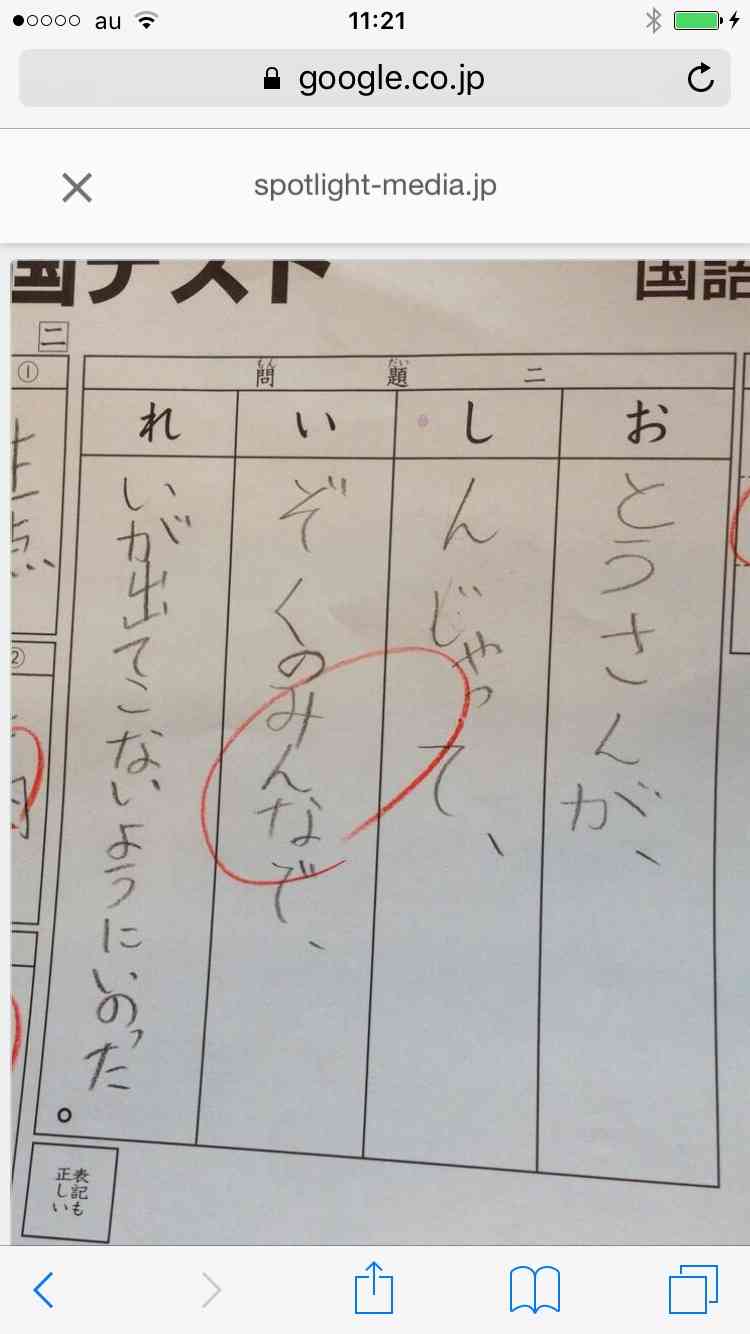 au 11:21
google.co.jp
spotlight-media.jp
国語
国テスト
もん だい
問題二
おとうさんが、
しんじゃって、
いぞくのみんなで、
れいが出てこないようにいのった。
表記も
正しい
二
①
②